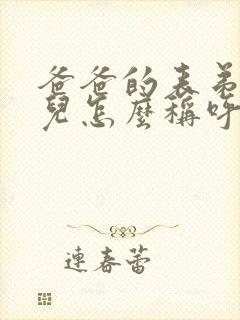 爸爸的表弟
兒怎麼稱呼
連春蕾